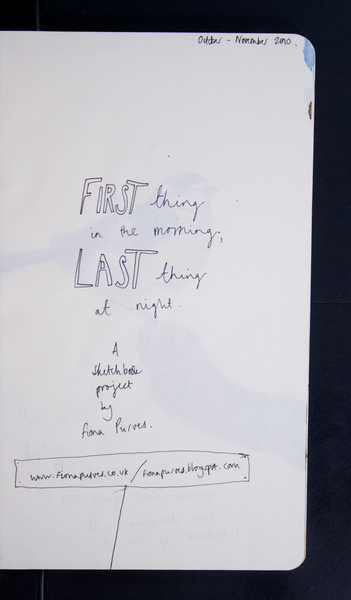 October - November 2010.
FIRST thing
in the morning,
LAST thing
at night.
A
sketchbook
project
by
fiona Purves.
www.fionapurves.co.uk / fionapurves.blogspot.com